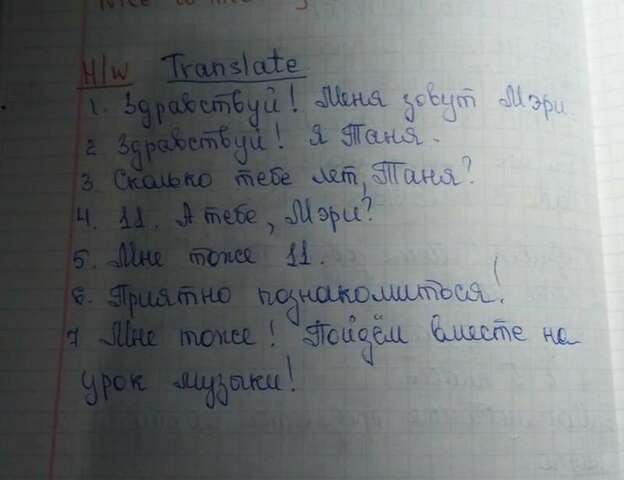 Nice to me
H/w Translate
1. Здравствуй! Меня зовут Мэри.
2. Здравствуй! Я Таня.
3. Сколько тебе лет, Таня?
4. 11. А тебе, Мэри?
5. Мне тоже 11.
6. Приятно познакомиться!
7 Мне тоже! Пойдём вместе на
урок музыки!